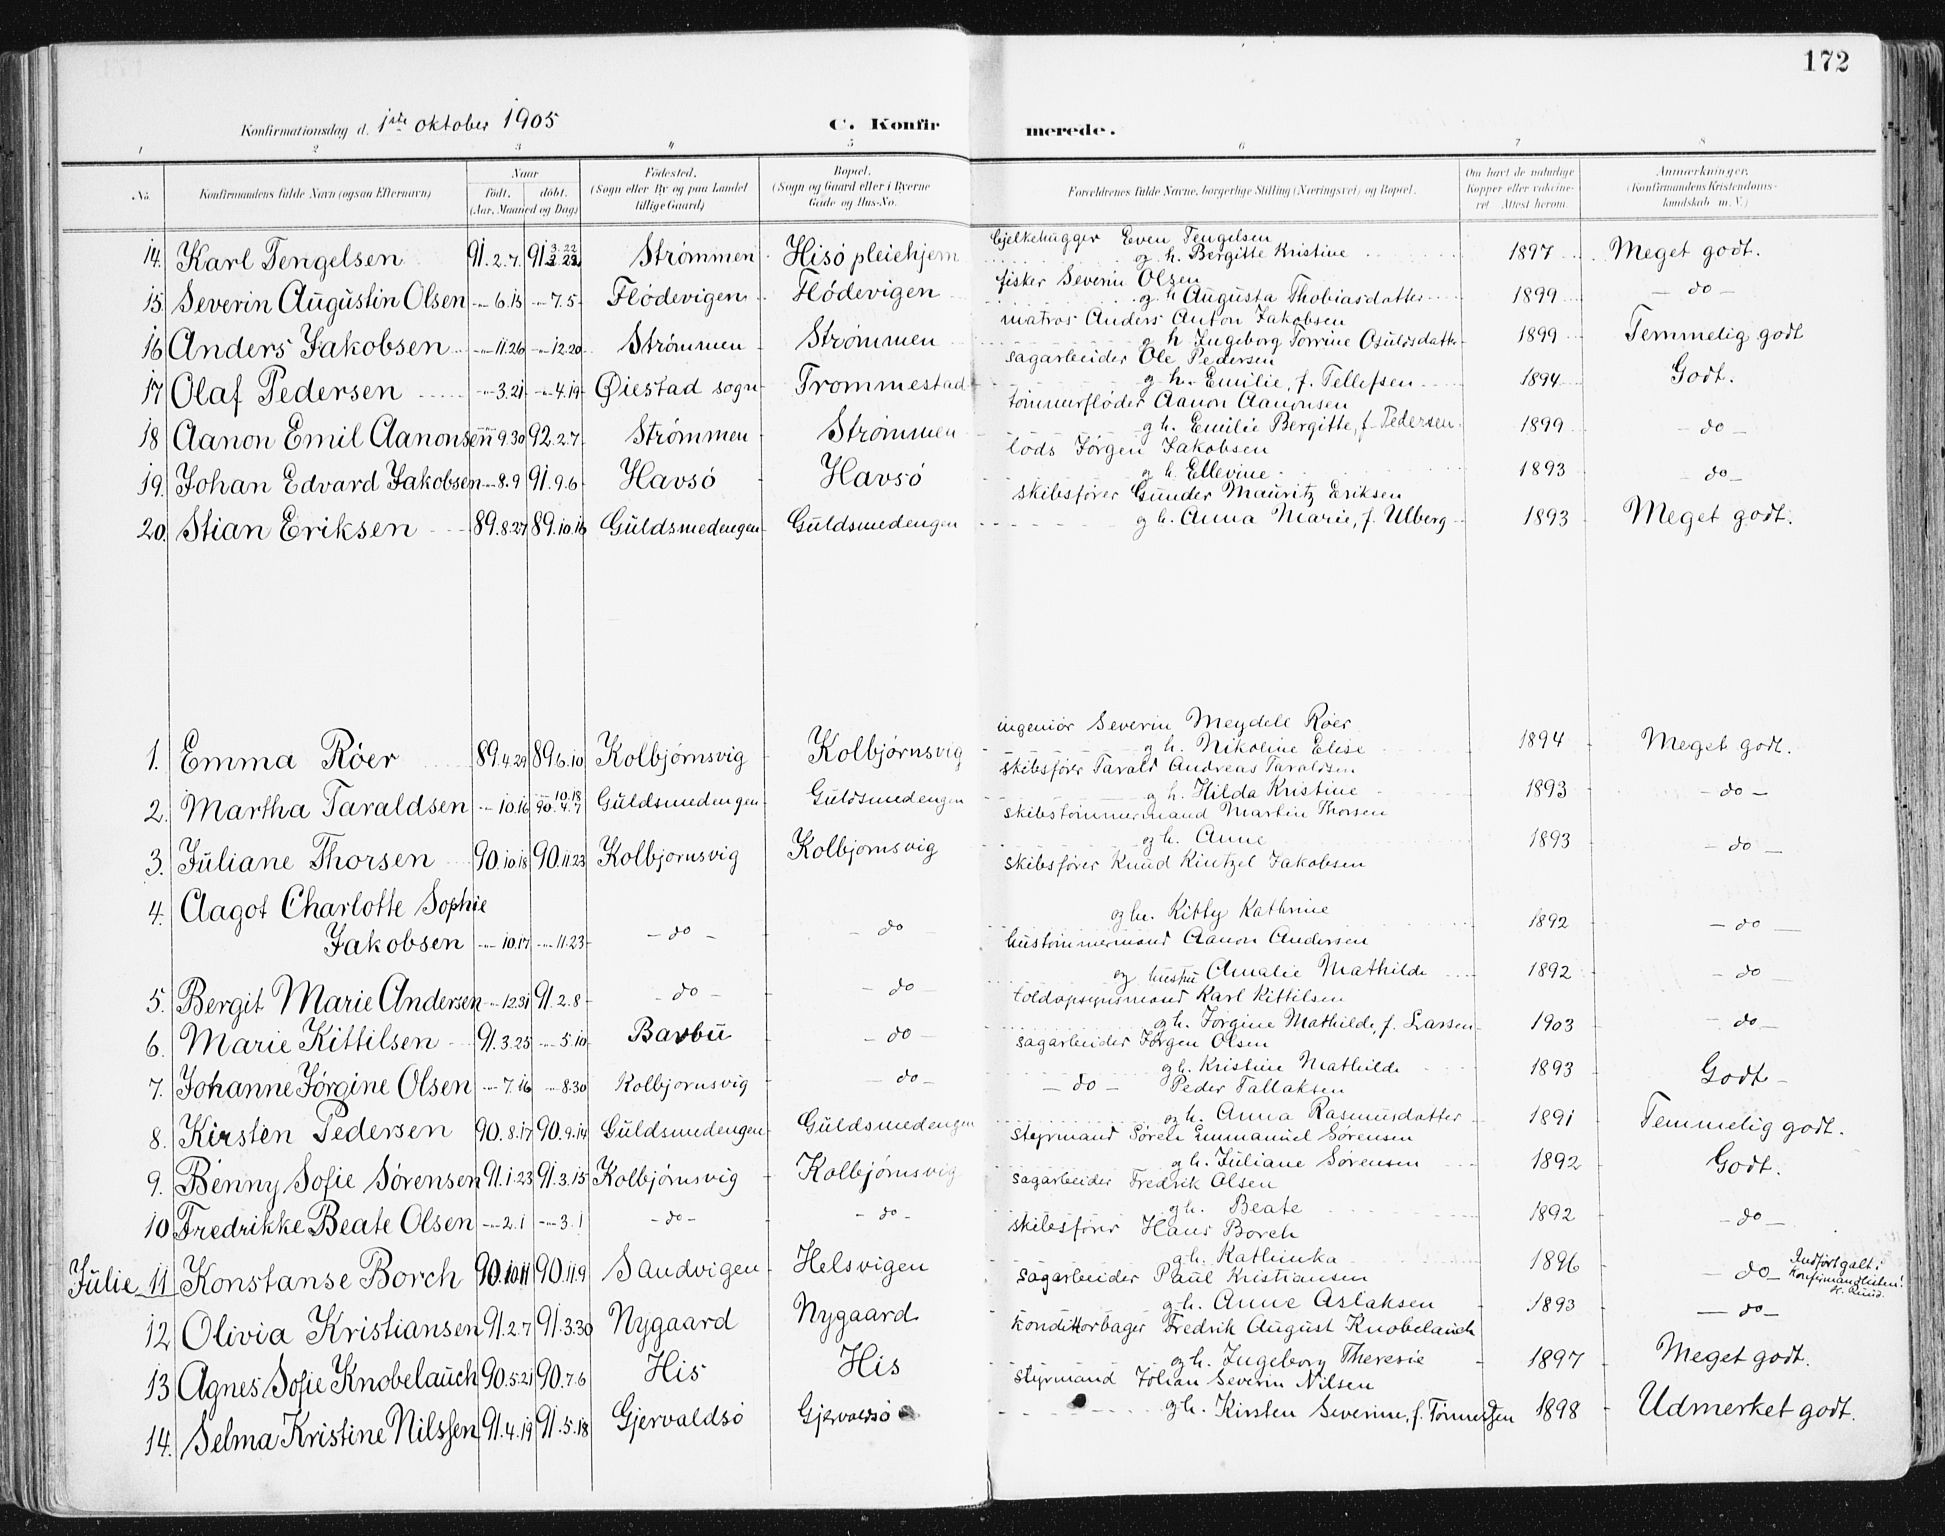 172
Konfirmationsdag d. 1ste oktober 1905 C. Konfirmerede.
1 2 3 4 5 6 7 8
No. Konfirmandens fulde Navn (ogsaa Efternavn) Naar født. døbt. (Aar, Maaned og Dag) Fødested. (Sogn eller By og paa Landet tillige Gaard) Bopæl. (Sogn og Gaard eller i Byerne Gade og Hus-No. Forældrenes fulde Navne, borgerlige Stilling (Næringsvei) og Bopæl. Om havt de naturlige Kopper eller vaccineret. Attest herom. Anmærkninger. (Konfirmandens Kristendomskundskab m. V.)
bjelkehugger Even Tengelsen
14. Karl Tengelsen 91.2.7. 91. 3.22 Strømmen Hisø pleiehjem og h. Bergitte Kristine 1897 Meget godt.
fisker Severin Olsen
15. Severin Augustin Olsen -"- 6.13 -"- 7.5 Flødevigen Flødevigen og h Augusta Thobiasdatter 1899 - do -
matros Anders Anton Jakobsen
16 Anders Jakobsen -"- 11.26 -"- 12.20 Strømmen Strømmen og h Ingeborg Torrine Osuldsdatter 1899 Temmelig godt
sagarbeider Ole Pedersen
17 Olaf Pedersen -"- 3.21 -"- 4.19 Øiestad sogn Trommestad og h. Emilie, f. Tellefsen 1894 Godt.
tømmerfløder Aanon Aanonsen
18 Aanon Emil Aanonsen -"- 9.30 92.2.7 Strømmen Strømmen og h. Emilie Bergitte, f. Pedersen 1899 - do -
lods Jørgen Jakobsen
19. Johan Edvard Jakobsen -"- 8.9 91.9.6 Havsø Havsø og h. Ellevine 1893 - do -
skibsfører Gunder Mauritz Eriksen
20. Stian Eriksen 89.8.27 89.10.16 Guldsmedengen Guldsmedengen og h. Anna Marie, f. Ulberg 1893 Meget godt.
ingeniør Severin Meydell Røer
1. Emma Røer 89.4.29 89.6.10 Kolbjørnsvig Kolbjørnsvig og h. Nikoline Elise 1894 Meget godt.
skibsfører Tarald Andreas Taraldsen
2. Martha Taraldsen -"- 10.16 -"- 10.18 90.4.7 Guldsmedengen Guldsmedengen og h. Hilda Kristine 1893 - do -
skibstømmermand Martin Thorsen
3. Juliane Thorsen 90.10.18 90.11.23 Kolbjornsvig Kolbjornsvig og h. Anne 1893 - do -
skibsfører Knud Kintzel Jakobsen
4. Aagot Charlotte Sophie og h. Kitty Kathrine
Jakobsen -"- 10.17 -"- 11.23 - do - - do - 1892 - do -
hustømmermand Aanon Andersen
5. Bergit Marie Andersen -"- 12.31 91.2.8 - do - - do - og hustru Amalie Mathilde 1892 - do -
toldopsynsmand Karl Kittilsen
6. Marie Kittilsen 91.3.25 -"- 5.10 Barbu - do - og h. Jørgine Mathilde, f. Larsen 1903 - do -
sagarbeider Jørgen Olsen
7. Johanne Jørgine Olsen -"- 7.16 -"- 8.30 Kolbjornsvig - do - og h. Kristine Mathilde 1893 Godt -
- do - Peder Tallaksen
8. Kirsten Pedersen 90.8.17 90.9.14 Guldsmedengen Guldsmedengen og h. Anna Rasmusdatter 1891 Temmelig godt.
styrmand Søren Emmanuel Sørensen
9. Benny Sofie Sørensen 91.1.23 91.3.15 Kolbjørnsvig Kolbjørnsvig og h. Juliane Sørensen 1892 Godt.
sagarbeider Fredrik Olsen
10 Fredrikke Beate Olsen -"- 2.1 -"- 3.1 - do - - do - og h. Beate 1892 - do -
skibsfører Hans Borch
Julie 11 Konstanse Borch 90.10.11 90.11.9 Sandvigen Helsvigen og h. Kathinka 1896 - do - Indført galt i Konfirmandlisten! K. Rund.
sagarbeider Paul Kristiansen
12 Olivia Kristiansen 91.2.7 91.3.30 Nygaard Nygaard og h. Anne Aslaksen 1893 - do -
konditorbager Fredrik August Knobelauch
13 Agnes Sofie Knobelauch 90.5.21 90.7.6 His His og h. Ingeborg Theresie 1897 Meget godt.
styrmand Johan Severin Nilsen
14. Selma Kristine Nilssen 91.4.19 91.5.18 Gjervaldsø Gjervaldsø og h. Kirsten Severine, f. Tønnessen 1898 Udmerket godt.